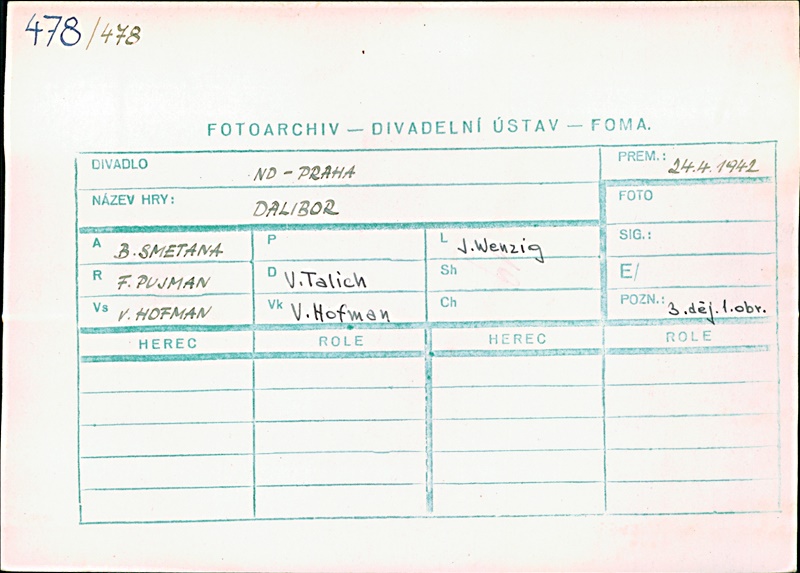 478/478
FOTOARCHIV — DIVADELNÍ ÚSTAV — FOMA.
DIVADLO ND - PRAHA PREM.: 24.4.1942
NÁZEV HRY: DALIBOR FOTO
A B. SMETANA P L J. Wenzig SIG.:
R F. PUJMAN D V. Talich Sh E/
Vs V. HOFMAN Vk V. Hofman Ch POZN.: 3. děj. 1. obr.
HEREC ROLE HEREC ROLE